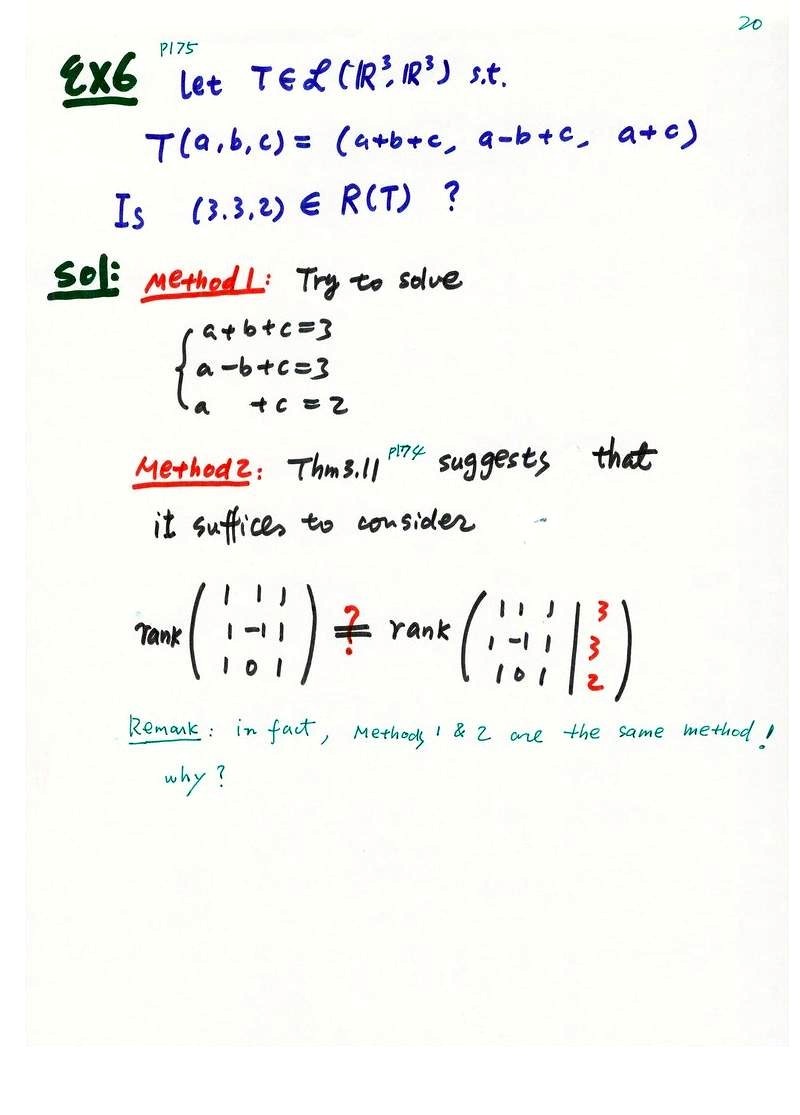 20
Ex6 P175 let T∈L(ℝ³,ℝ³) s.t.
T(a,b,c) = (a+b+c, a-b+c, a+c)
Is (3.3.2) ∈ R(T) ?
Sol: Method1: Try to solve
a+b+c=3
a-b+c=3
a +c =2
Method2: Thm3.11 P174 suggests that
it suffices to consider
rank ( 1 1 1 ; 1 -1 1 ; 1 0 1 ) =? rank ( 1 1 1 | 3 ; 1 -1 1 | 3 ; 1 0 1 | 2 )
Remark: in fact, Methods 1 & 2 are the same method!
why?